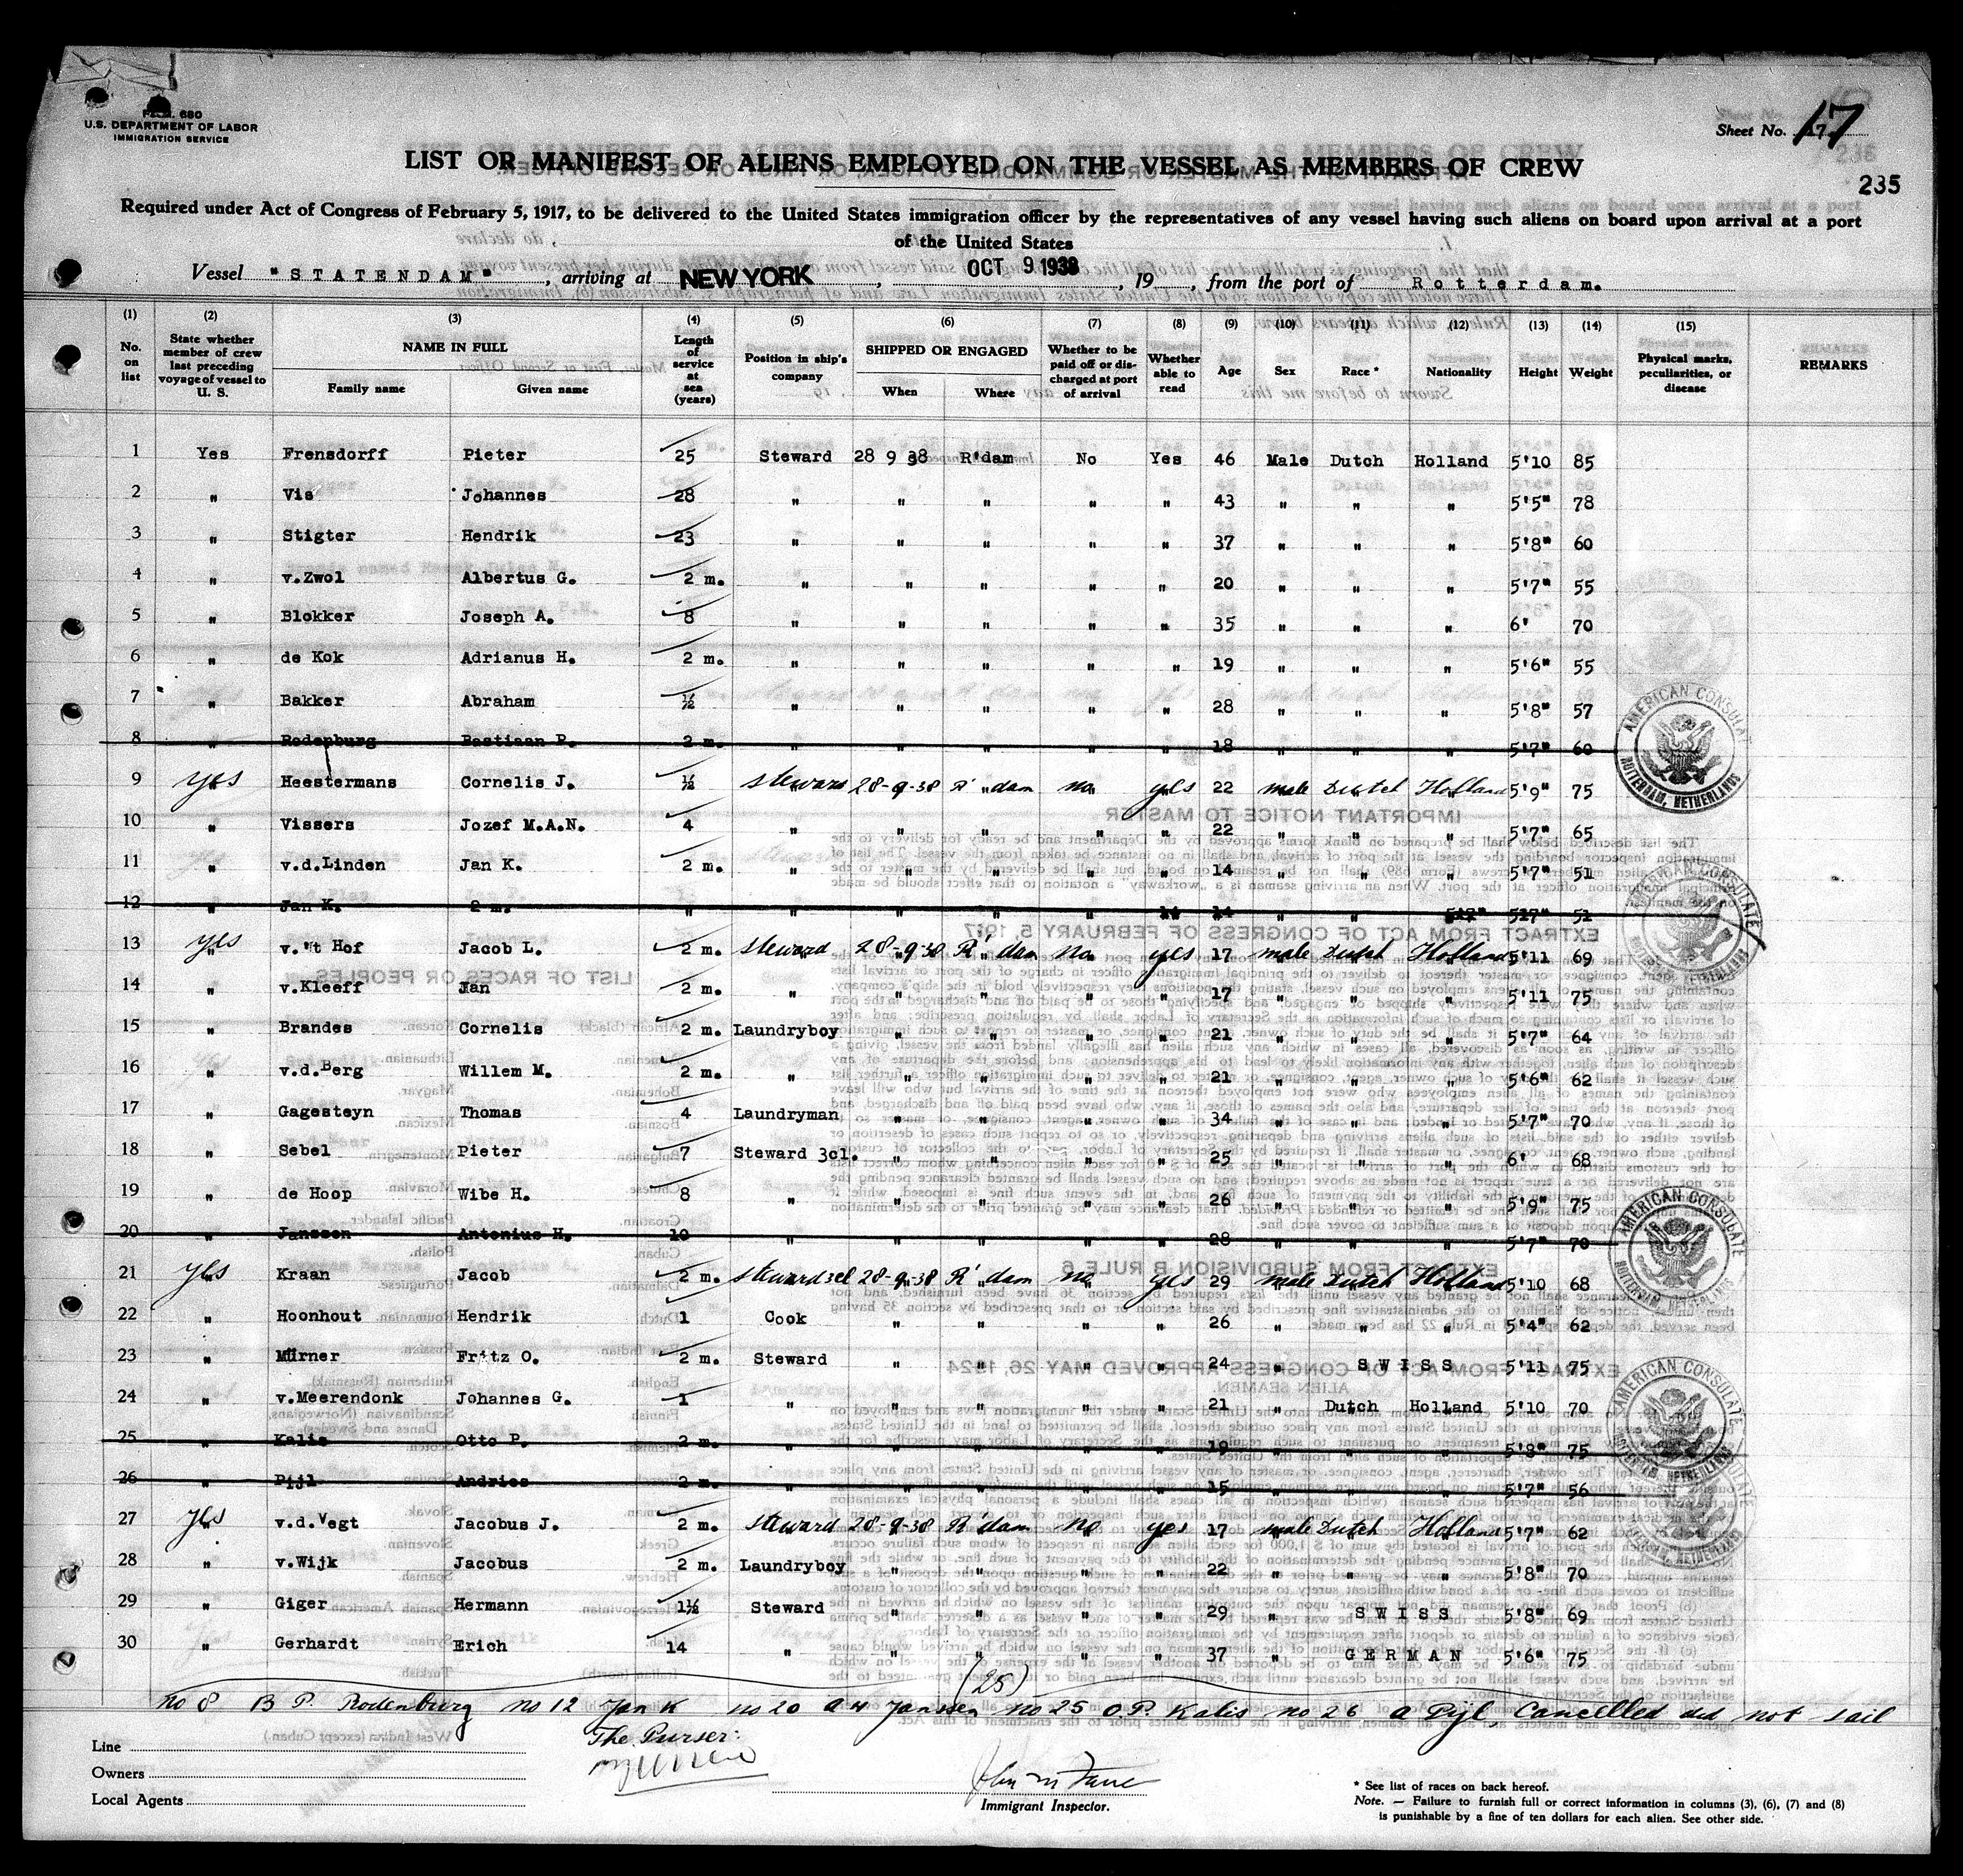 Form 680
U.S. DEPARTMENT OF LABOR
IMMIGRATION SERVICE
Sheet No. 17
235
LIST OR MANIFEST OF ALIENS EMPLOYED ON THE VESSEL AS MEMBERS OF CREW
Required under Act of Congress of February 5, 1917, to be delivered to the United States immigration officer by the representatives of any vessel having such aliens on board upon arrival at a port
of the United States
Vessel "STATENDAM", arriving at NEW YORK, OCT 9 1938, 19, from the port of Rotterdam.
(1) (2) (3) (4) (5) (6) (7) (8) (9) (10) (11) (12) (13) (14) (15)
No. on list | State whether member of crew last preceding voyage of vessel to U. S. | NAME IN FULL Family name Given name | Length of service at sea (years) | Position in ship's company | SHIPPED OR ENGAGED When Where | Whether to be paid off or discharged at port of arrival | Whether able to read | Age | Sex | Race * | Nationality | Height | Weight | Physical marks, peculiarities, or disease | REMARKS
1 Yes Frensdorff Pieter 25 Steward 28 9 38 R'dam No Yes 46 Male Dutch Holland 5'10 85
2 " Vis Johannes 28 " " " " " 43 " " " 5'5" 78
3 " Stigter Hendrik 23 " " " " " 37 " " " 5'8" 60
4 " v.Zwol Albertus G. 2 m. " " " " " 20 " " " 5'7" 55
5 " Blokker Joseph A. 8 " " " " " 35 " " " 6' 70
6 " de Kok Adrianus H. 2 m. " " " " " 19 " " " 5'6" 55
7 " Bakker Abraham ½ " " " " " 28 " " " 5'8" 57
8 " Rodenburg Bastiaan P. 2 m. " " " " " 18 " " " 5'7" 60
9 yes Heestermans Cornelis J. ½ steward 28-9-38 R'dam no yes 22 male Dutch Holland 5'9" 75
10 " Vissers Jozef M.A.N. 4 " " " " " 22 " " " 5'7" 65
11 " v.d.Linden Jan K. 2 m. " " " " " 14 " " " 5'7" 51
12 " Jan K. 2 m. " " " " " 14 14 " " 5'7" 5'7" 51
13 yes v.'t Hof Jacob L. 2 m. steward 28-9-38 R'dam no yes 17 male Dutch Holland 5'11 69
14 " v.Kleeff Jan 2 m. " " " " " 17 " " " 5'11 75
15 " Brandes Cornelis 2 m. Laundryboy " " " " 21 " " " 5'7" 64
16 " v.d.Berg Willem M. 2 m. " " " " " 21 " " " 5'6" 62
17 " Gagesteyn Thomas 4 Laundryman " " " " 34 " " " 5'7" 70
18 " Sebel Pieter 7 Steward 3cl. " " " " 25 " " " 6' 68
19 " de Hoop Wibe H. 8 " " " " " 26 " " " 5'9" 75
20 " Janssen Antonius H. 10 " " " " " 28 " " " 5'7" 70
21 yes Kraan Jacob 2 m. steward 3cl 28-9-38 R'dam no yes 29 male Dutch Holland 5'10 68
22 " Hoonhout Hendrik 1 Cook " " " " 26 " " " 5'4" 62
23 " Mürner Fritz O. 2 m. Steward " " " " 24 " SWISS 5'11 75
24 " v.Meerendonk Johannes G. 1 " " " " " 21 " Dutch Holland 5'10 70
25 " Kalis Otto P. 2 m. " " " " " 19 " " " 5'8" 75
26 " Pijl Andries 2 m. " " " " " 15 " " " 5'7" 56
27 yes v.d.Vegt Jacobus J. 2 m. steward 28-9-38 R'dam no yes 17 male Dutch Holland 5'7" 62
28 " v.Wijk Jacobus 2 m. Laundryboy " " " " 22 " " " 5'8" 70
29 " Giger Hermann 1½ Steward " " " " 29 " SWISS 5'8" 69
30 " Gerhardt Erich 14 " " " " " 37 " GERMAN 5'6" 75
AMERICAN CONSULATE ROTTERDAM, NETHERLANDS
AMERICAN CONSULATE
AMERICAN CONSULATE ROTTERDAM, NETHERLANDS
AMERICAN CONSULATE ROTTERDAM, NETHERLANDS
(25)
no 8 B P. Rodenburg no 12 Jan K no 20 a H Janssen no 25 O.P. Kalis no 26 a Pijl, Cancelled did not sail
The Purser:
Line
Owners
Local Agents
Immigrant Inspector.
* See list of races on back hereof.
Note. — Failure to furnish full or correct information in columns (3), (6), (7) and (8)
is punishable by a fine of ten dollars for each alien. See other side.